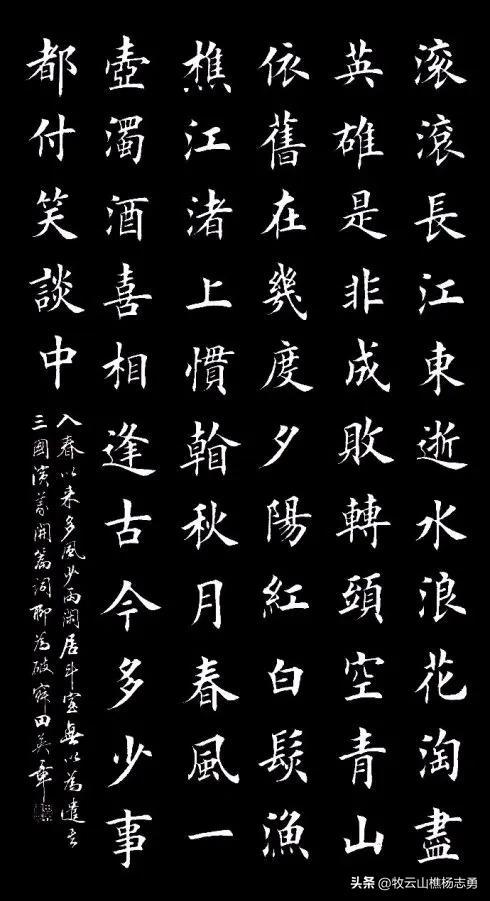 滚滾長江東逝水浪花淘盡
英雄是非成敗轉頭空青山
依舊在幾度夕陽紅白髮漁
樵江渚上慣看秋月春風一
壺濁酒喜相逢古今多少事
都付笑談中
入春以来多風少雨閑居斗室無以為遣書
三國演義開篇詞聊為破寂田英章
头条 @牧云山樵杨志勇